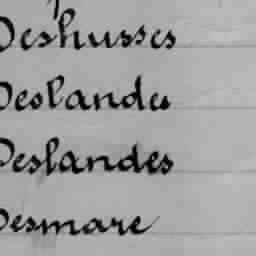 Deshusses
Deslandes
Deslandes
Desmare